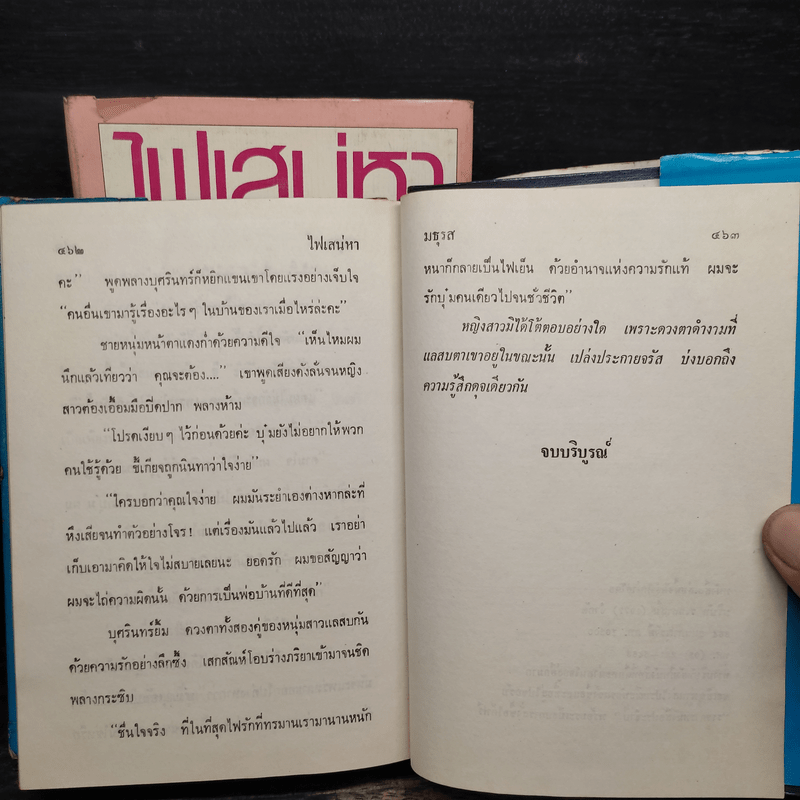 ไฟเสน่หา
๔๖๒ ไฟเสน่หา
คะ” พูดพลางบุศรินทร์ก็หยิกแขนเขาโดยแรงอย่างเจ็บใจ
“คนอื่นเขามารู้เรื่องอะไรๆ ในบ้านของเราเมื่อไหร่ล่ะคะ”
ชายหนุ่มหน้าตาแดงก่ำด้วยความดีใจ “เห็นไหมผม
นึกแล้วเทียวว่า คุณจะต้อง....” เขาพูดเสียงดังลั่นจนหญิง
สาวต้องเอื้อมมือปิดปาก พลางห้าม
“โปรดเงียบๆ ไว้ก่อนด้วยค่ะ บุ๋มยังไม่อยากให้พวก
คนใช้รู้ด้วย ขี้เกียจถูกนินทาว่าใจง่าย”
“ใครบอกว่าคุณใจง่าย ผมมันระยำเองต่างหากล่ะที่
หึงเสียจนทำตัวอย่างโจร! แต่เรื่องมันแล้วไปแล้ว เราอย่า
เก็บเอามาคิดให้ใจไม่สบายเลยนะ ยอดรัก ผมขอสัญญาว่า
ผมจะไถ่ความผิดนั้น ด้วยการเป็นพ่อบ้านที่ดีที่สุด”
บุศรินทร์ยิ้ม ดวงตาทั้งสองคู่ของหนุ่มสาวแลสบกัน
ด้วยความรักอย่างลึกซึ้ง เสกสัณห์โอบร่างภริยาเข้ามาจนชิด
พลางกระซิบ
“ชื่นใจจริง ที่ในที่สุดไฟรักที่ทรมานเรามานานหนัก
มธุรส ๔๖๓
หนาก็กลายเป็นไฟเย็น ด้วยอำนาจแห่งความรักแท้ ผมจะ
รักบุ๋มคนเดียวไปจนชั่วชีวิต”
หญิงสาวมิได้โต้ตอบอย่างใด เพราะดวงตาดำงามที่
แลสบตาเขาอยู่ในขณะนั้น เปล่งประกายจรัส บ่งบอกถึง
ความรู้สึกดุจเดียวกัน
จบบริบูรณ์